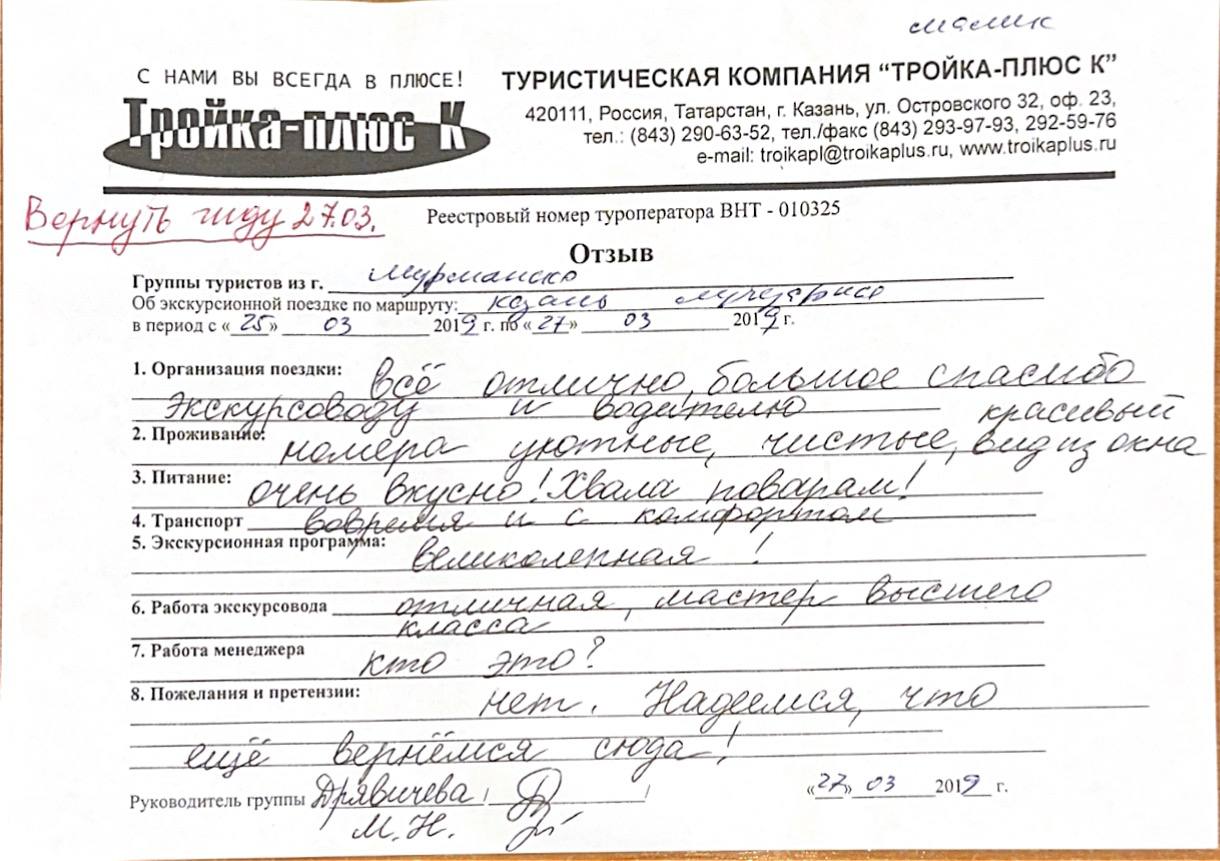 мамик
С НАМИ ВЫ ВСЕГДА В ПЛЮСЕ!
Тройка-плюс К
ТУРИСТИЧЕСКАЯ КОМПАНИЯ “ТРОЙКА-ПЛЮС К”
420111, Россия, Татарстан, г. Казань, ул. Островского 32, оф. 23,
тел.: (843) 290-63-52, тел./факс (843) 293-97-93, 292-59-76
e-mail: troikapl@troikaplus.ru, www.troikaplus.ru
Вернуть гиду 27.03.
Реестровый номер туроператора ВНТ - 010325
Отзыв
Группы туристов из г. Мурманска
Об экскурсионной поездке по маршруту: Казань
в период с «25» 03 2019 г. по «27» 03 2019 г.
1. Организация поездки: всё отлично, большое спасибо
экскурсоводу и водителю
2. Проживание: номера уютные, чистые, красивый вид из окна
3. Питание: очень вкусно! Хвала поварам!
4. Транспорт вовремя и с комфортом
5. Экскурсионная программа: великолепная!
6. Работа экскурсовода отличная, мастер высшего
класса
7. Работа менеджера кто это?
8. Пожелания и претензии: нет. Надеемся, что
ещё вернёмся сюда!
Руководитель группы Дрявичева / / «27» 03 2019 г.
М.Н.